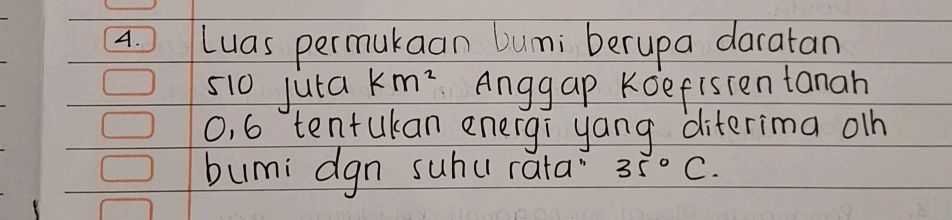 4. Luas permukaan bumi berupa daratan
510 juta km². Anggap koefisien tanah
0,6 tentukan energi yang diterima olh
bumi dgn suhu rata" 35° C.